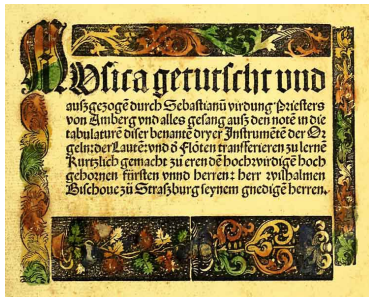 Musica getutscht und
außgezogē durch Sebastianū virdung Priesters
von Amberg vnd alles gesang auß den notē in die
tabulaturē diser benantē dryer Instrumētē der Or
geln: der Lautē: vnd d̄ Flöten transferieren zu lernē
Kurtzlich gemacht zu eren dē hochwirdigē hoch
gebornen fürsten vnnd herren: herr wilhalmen
Bischoue zů Straßburg seynem gnedigē herren.